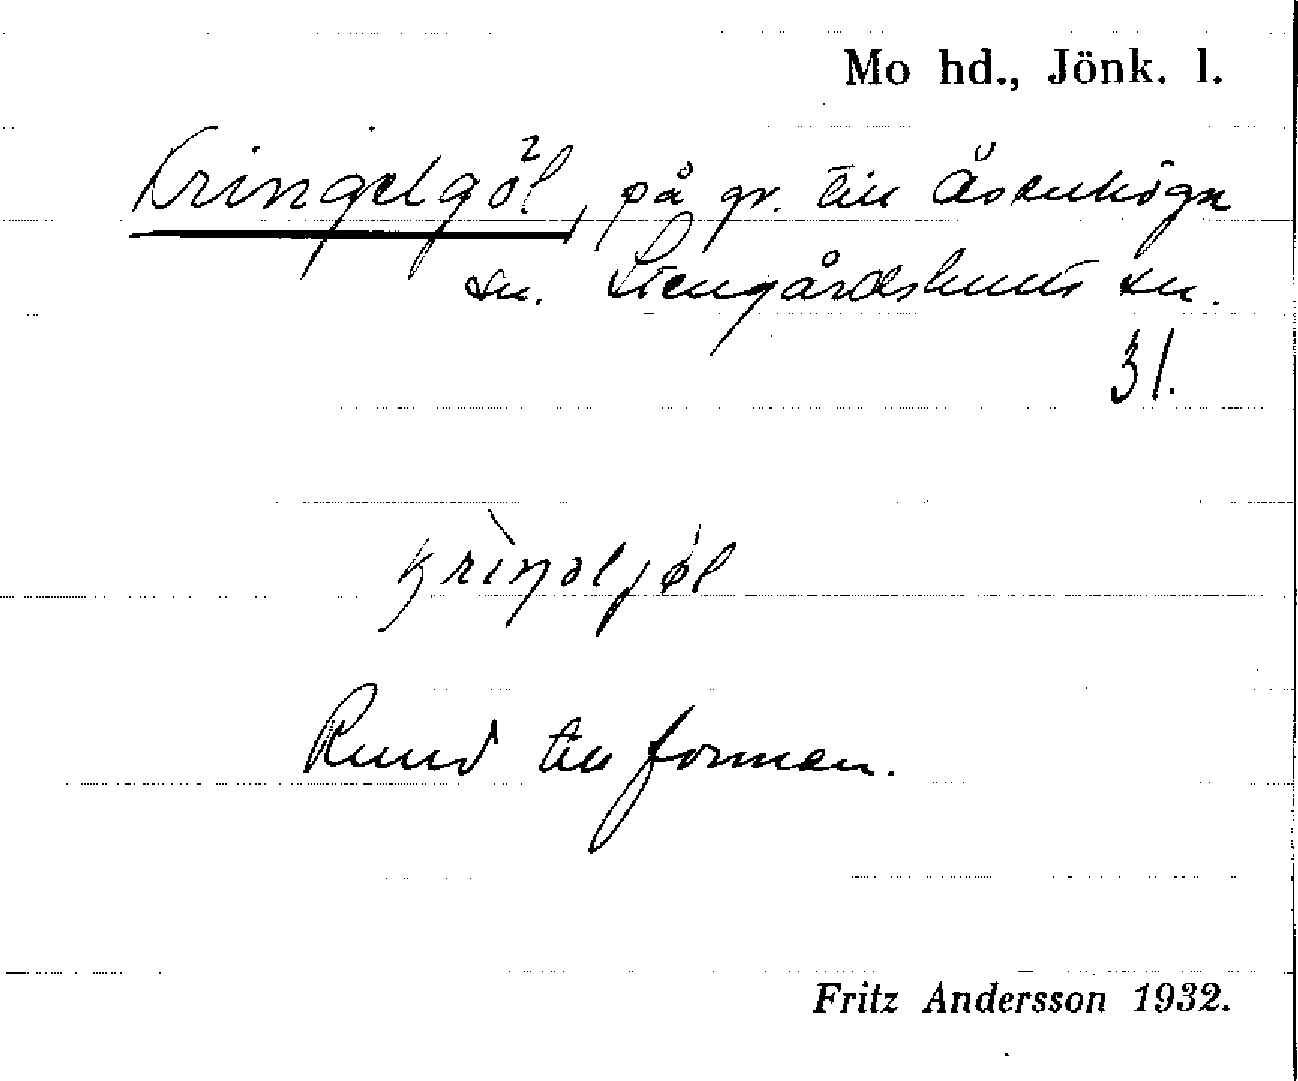 Mo hd., Jönk. l.
Kringelgöl², på gr. till Åsenhöga
sn. Stengårdshults sn.
31.
krìŋəljø̀l
Rund till formen.
Fritz Andersson 1932.